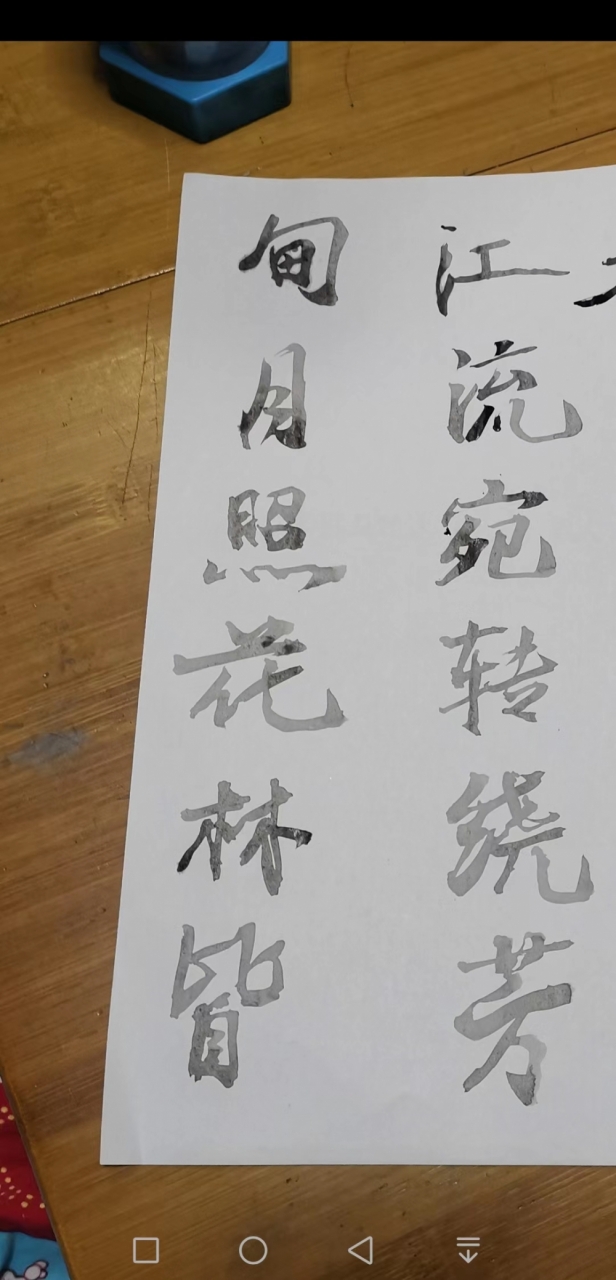 江流宛转绕芳
甸月照花林皆